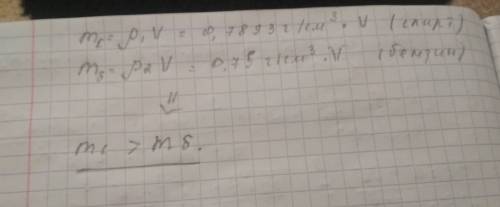 mc = ρ1V = 0,7893 г/см³ · V (спирт)
mб = ρ2V = 0,75 г/см³ · V (бензин)
⇓
mc > mб.